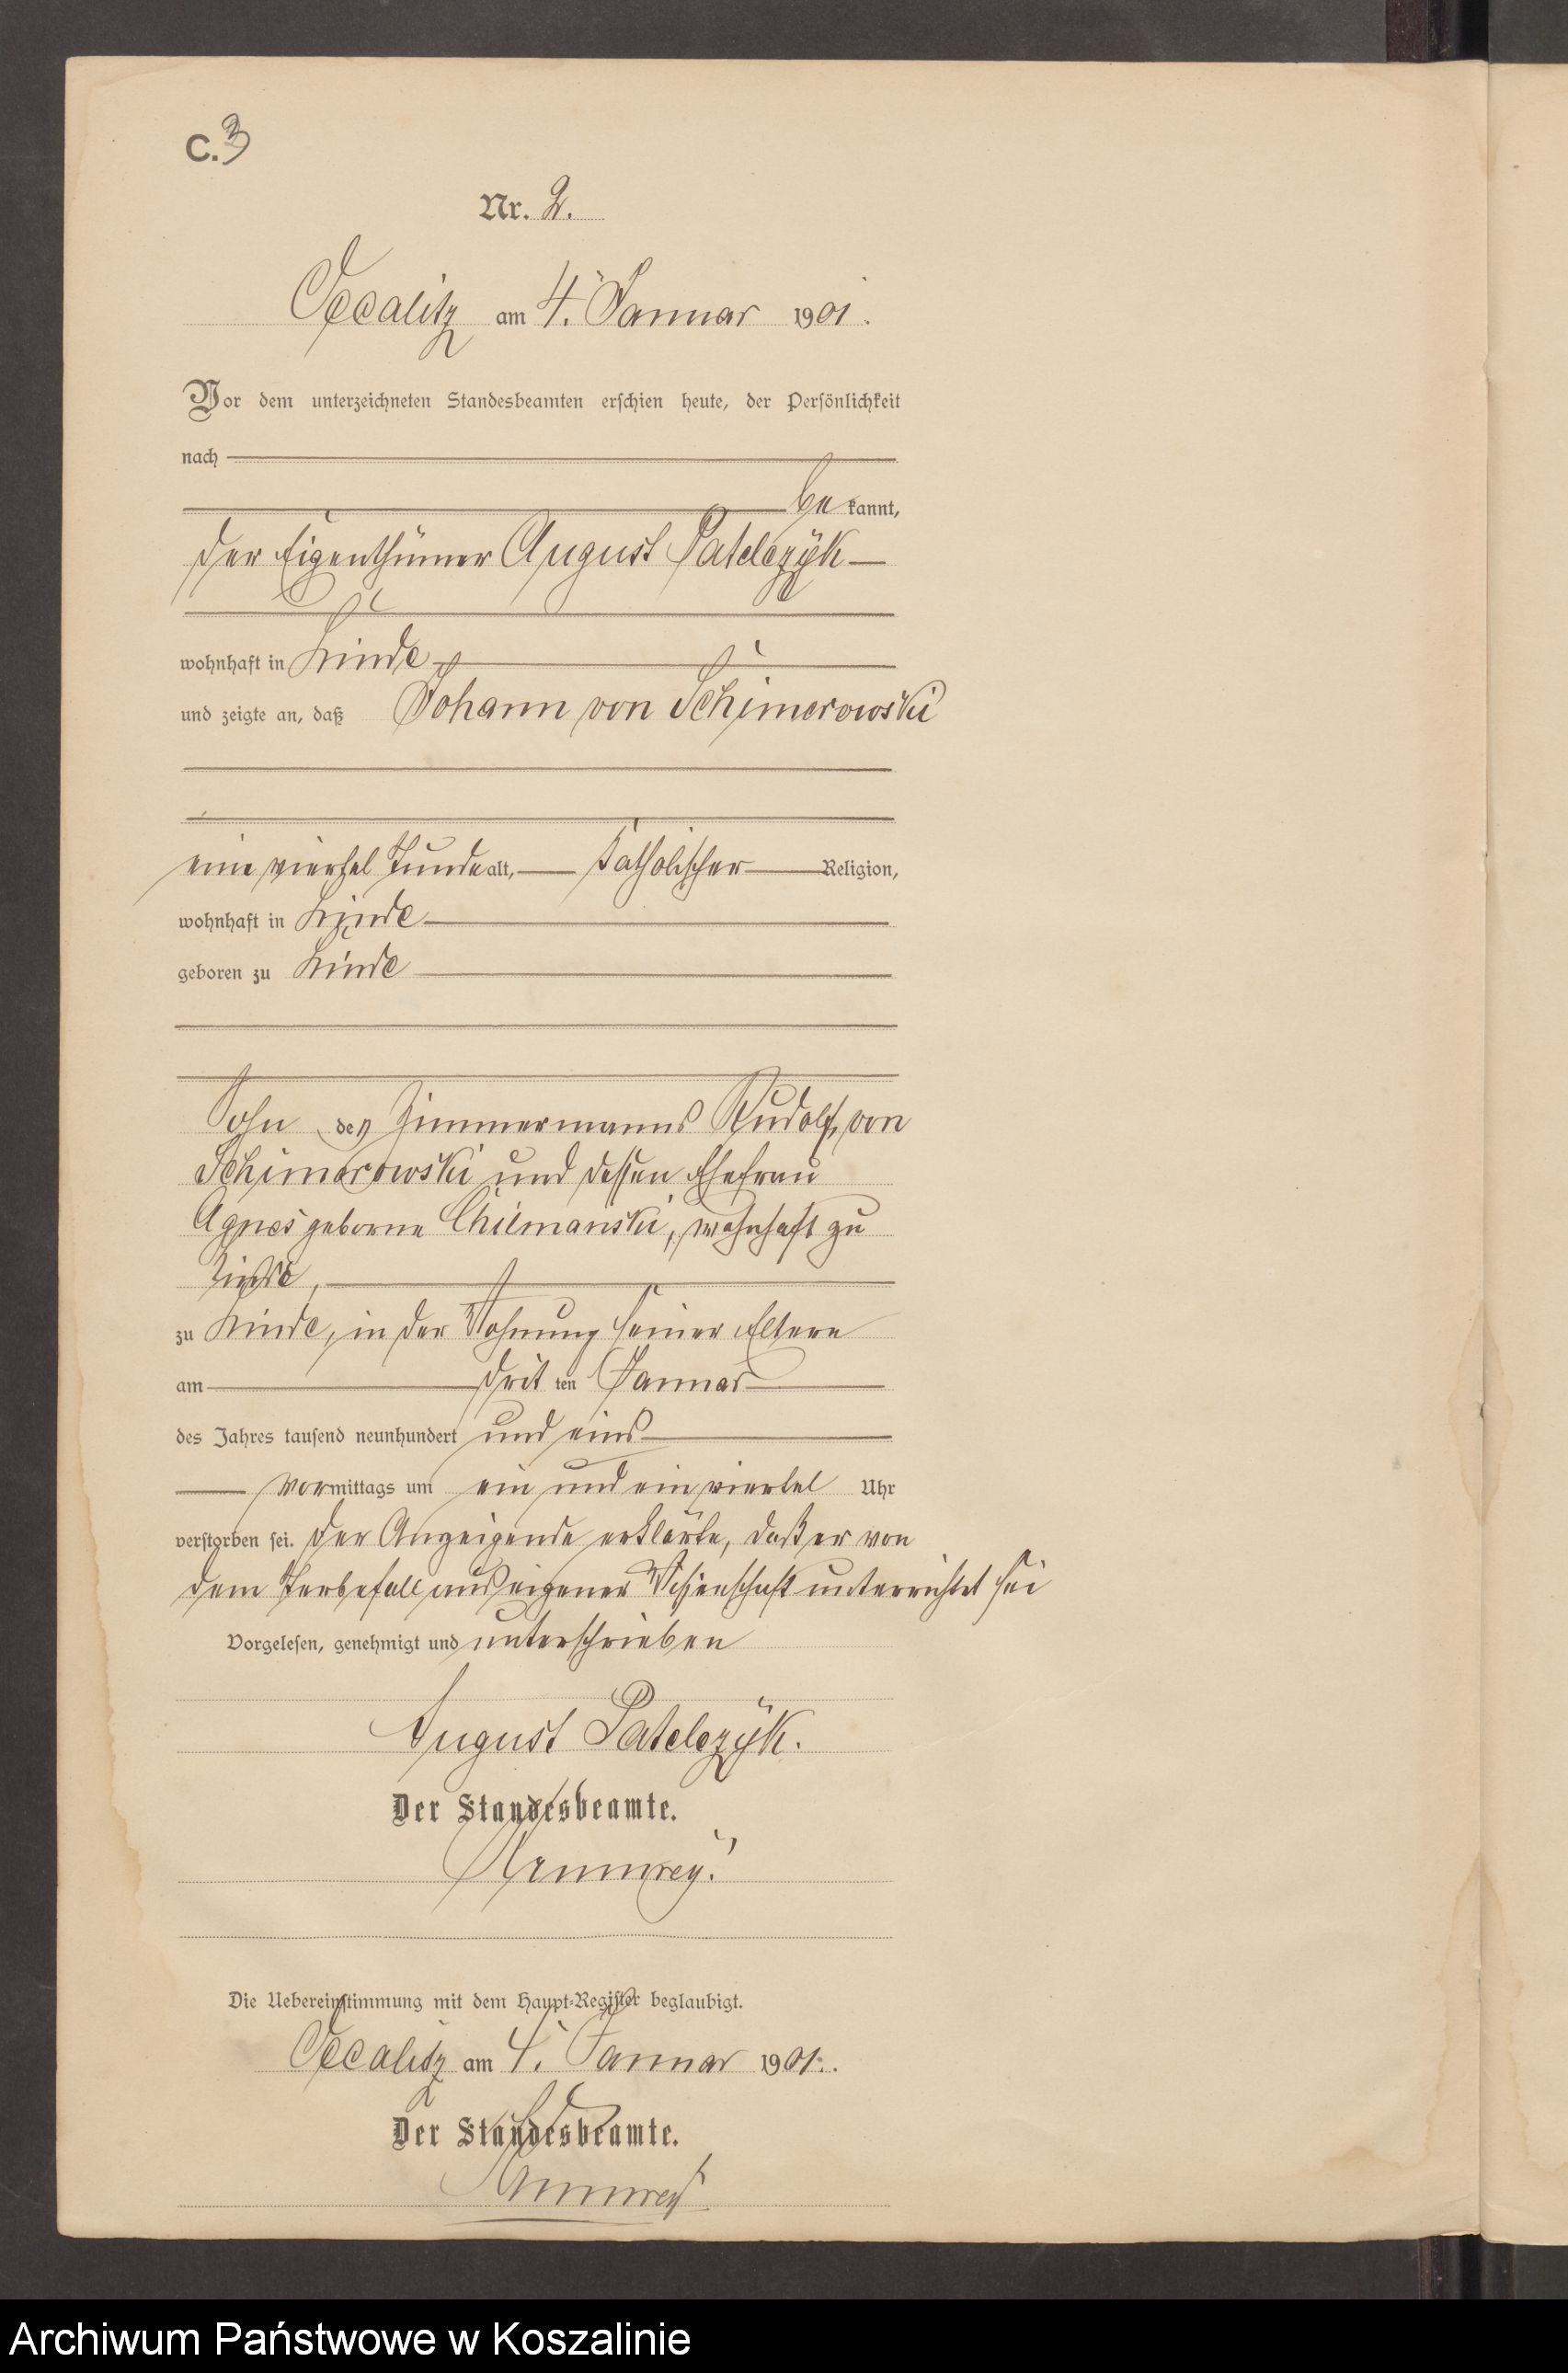 C. 3
Nr. 2.
Oecalitz am 4. Januar 1901.
Vor dem unterzeichneten Standesbeamten erschien heute, der Persönlichkeit
nach
be kannt,
der Eigenthümer August Patelczÿk
wohnhaft in
und zeigte an, daß Johann von Schimerowski
eine viertel Stunde alt, katholischer Religion,
wohnhaft in
geboren zu
Sohn des Zimmermanns Rudolf von
Schimerowski und dessen Ehefrau
Agnes geborne, wohnhaft zu
zu in der Wohnung seiner Eltern
am drit ten Januar
des Jahres tausend neunhundert und eins
vormittags um ein und ein viertel Uhr
verstorben sei. Der Anzeigende erklärte, daß er von
dem Sterbefall aus eigener Wissenschaft unterrichtet sei
Vorgelesen, genehmigt und unterschrieben
August Patelczÿk.
Der Standesbeamte.
Die Uebereinstimmung mit dem Haupt-Register beglaubigt.
Oecalitz am 4. Januar 1901.
Der Standesbeamte.
Archiwum Państwowe w Koszalinie